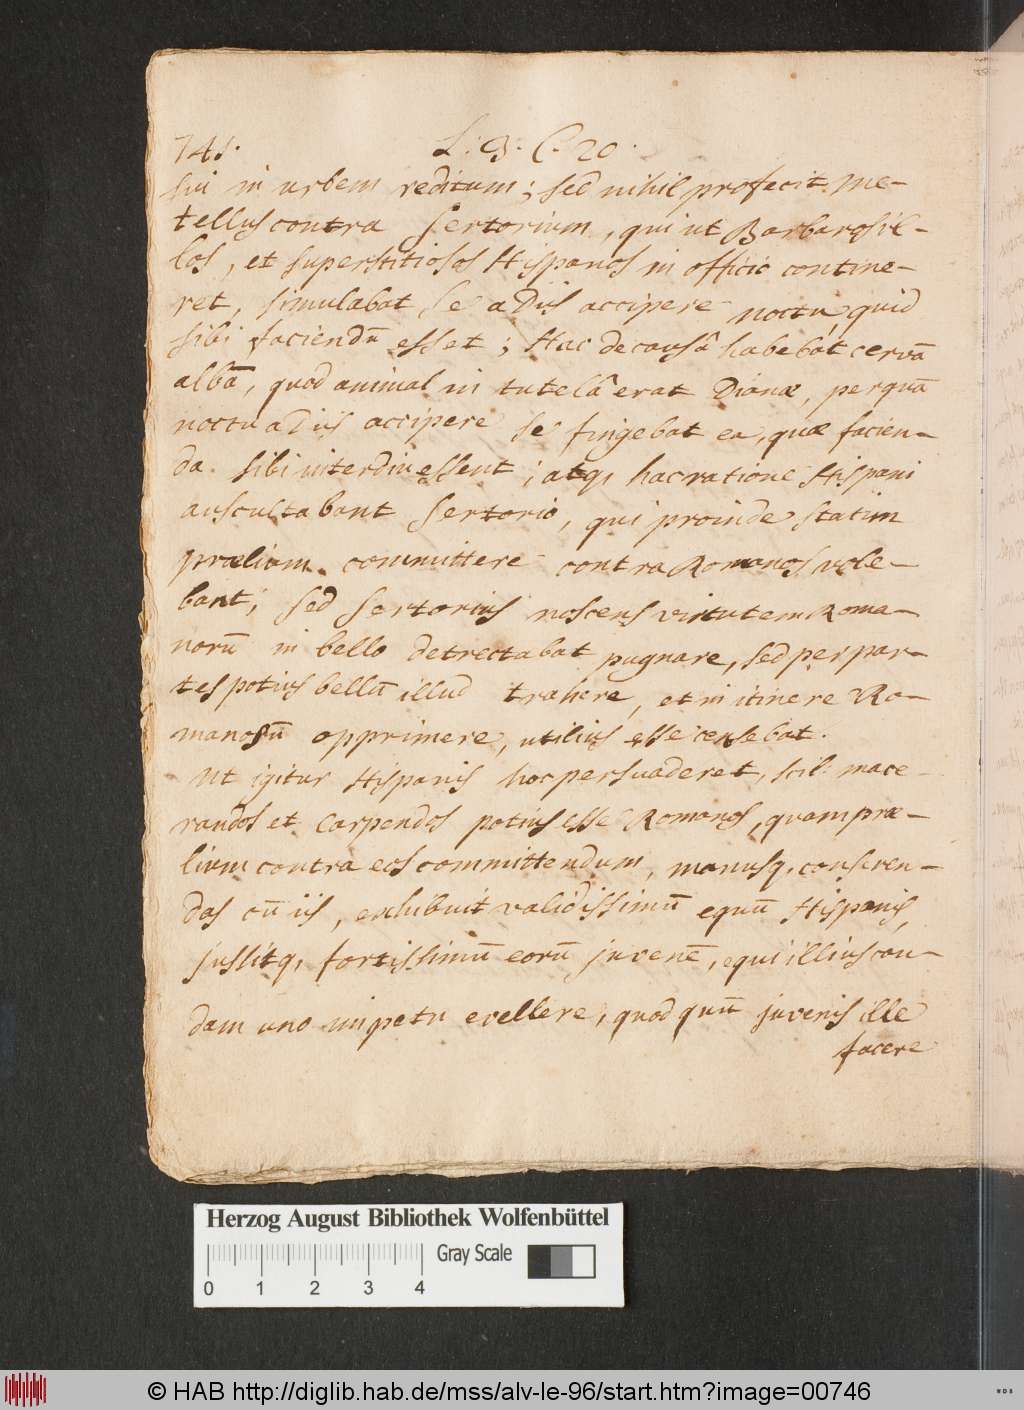 741.
L. 3. C. 20.
sui in urbem reditum; sed nihil profecit Me-
tellus contra Sertorium, qui ut Barbaros il-
los, et superstitiosos Hispanos in officio contine-
ret, simulabat se a Diis accipere noctu, quid
sibi faciendū esset; Hac de causâ habebat cervā
albā, quod animal in tutelâ erat Dianæ, per quā
noctu a Diis accipere se fingebat ea, quæ facien-
da sibi interdiu essent; atq, hac ratione Hispani
auscultabant Sertorio, qui proinde statim
prælium committere contra Romanos vole-
bant; sed Sertorius noscens virtutem Roma-
norū in bello detrectabat pugnare, sed per par-
tes potius bellū illud trahere, et in itinere Ro-
manos opprimere, utilius esse censebat.
Ut igitur Hispanis hoc persuaderet, scil. mace-
randos et carpendos potius esse Romanos, quam præ-
lium contra eos committendum, manusq, conseren-
das cū iis, exhibuit validissimū equū Hispanis,
jussitq, fortissimū eorū juvenē, equi illius cau-
dam uno impetu evellere, quod quū juvenis ille
facere
Herzog August Bibliothek Wolfenbüttel
Gray Scale
0 1 2 3 4
© HAB http://diglib.hab.de/mss/alv-le-96/start.htm?image=00746